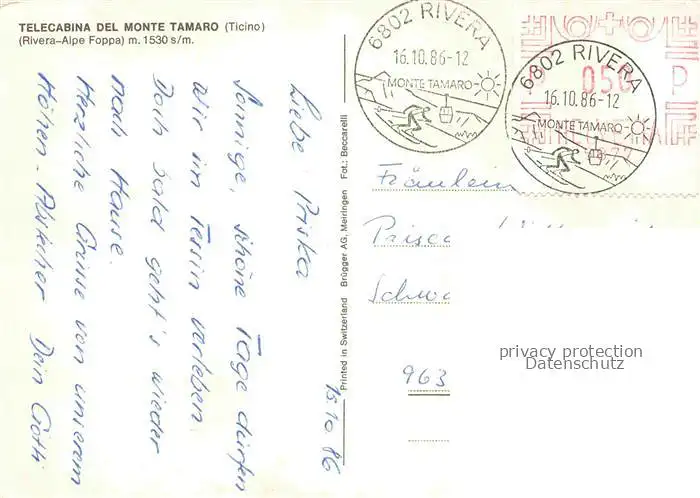 TELECABINA DEL MONTE TAMARO (Ticino)
(Rivera-Alpe Foppa) m. 1530 s/m.
6802 RIVERA
16.10.86-12
MONTE TAMARO
6802 RIVERA
16.10.86-12
MONTE TAMARO
050
P
15.10.86
Liebe Priska
Sonnige, schöne Tage dürfen
wir im Tessin verleben.
Doch bald geht's wieder
nach Hause.
Herzliche Grüsse von unserem
Höhen-Abstecher Dein Götti
Printed in Switzerland Brügger AG, Meiringen Fot.: Beccarelli
Fräulein
Prisca
Schwa
963
privacy protection
Datenschutz